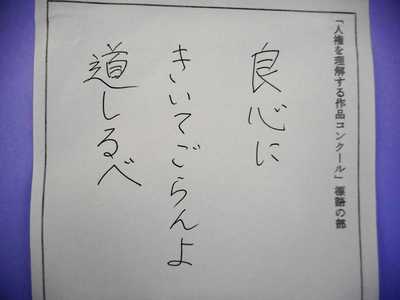 「人権を理解する作品コンクール」標語の部
良心に
きいてごらんよ
道しるべ